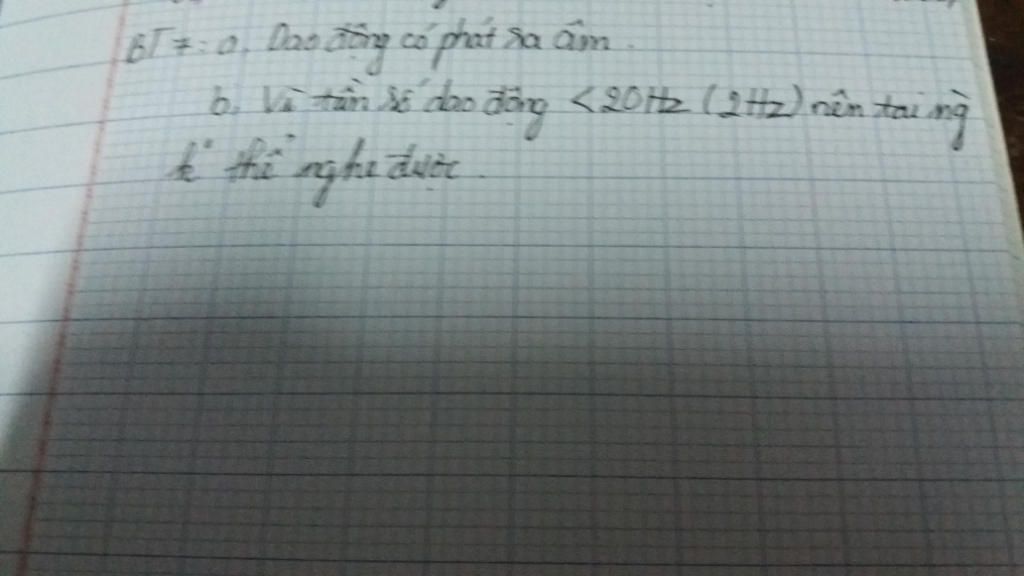 BT 7: a, Dao động có phát ra âm.
b, Vì tần số dao động <20Hz (2Hz) nên tai ng`
k° thể nghe được.